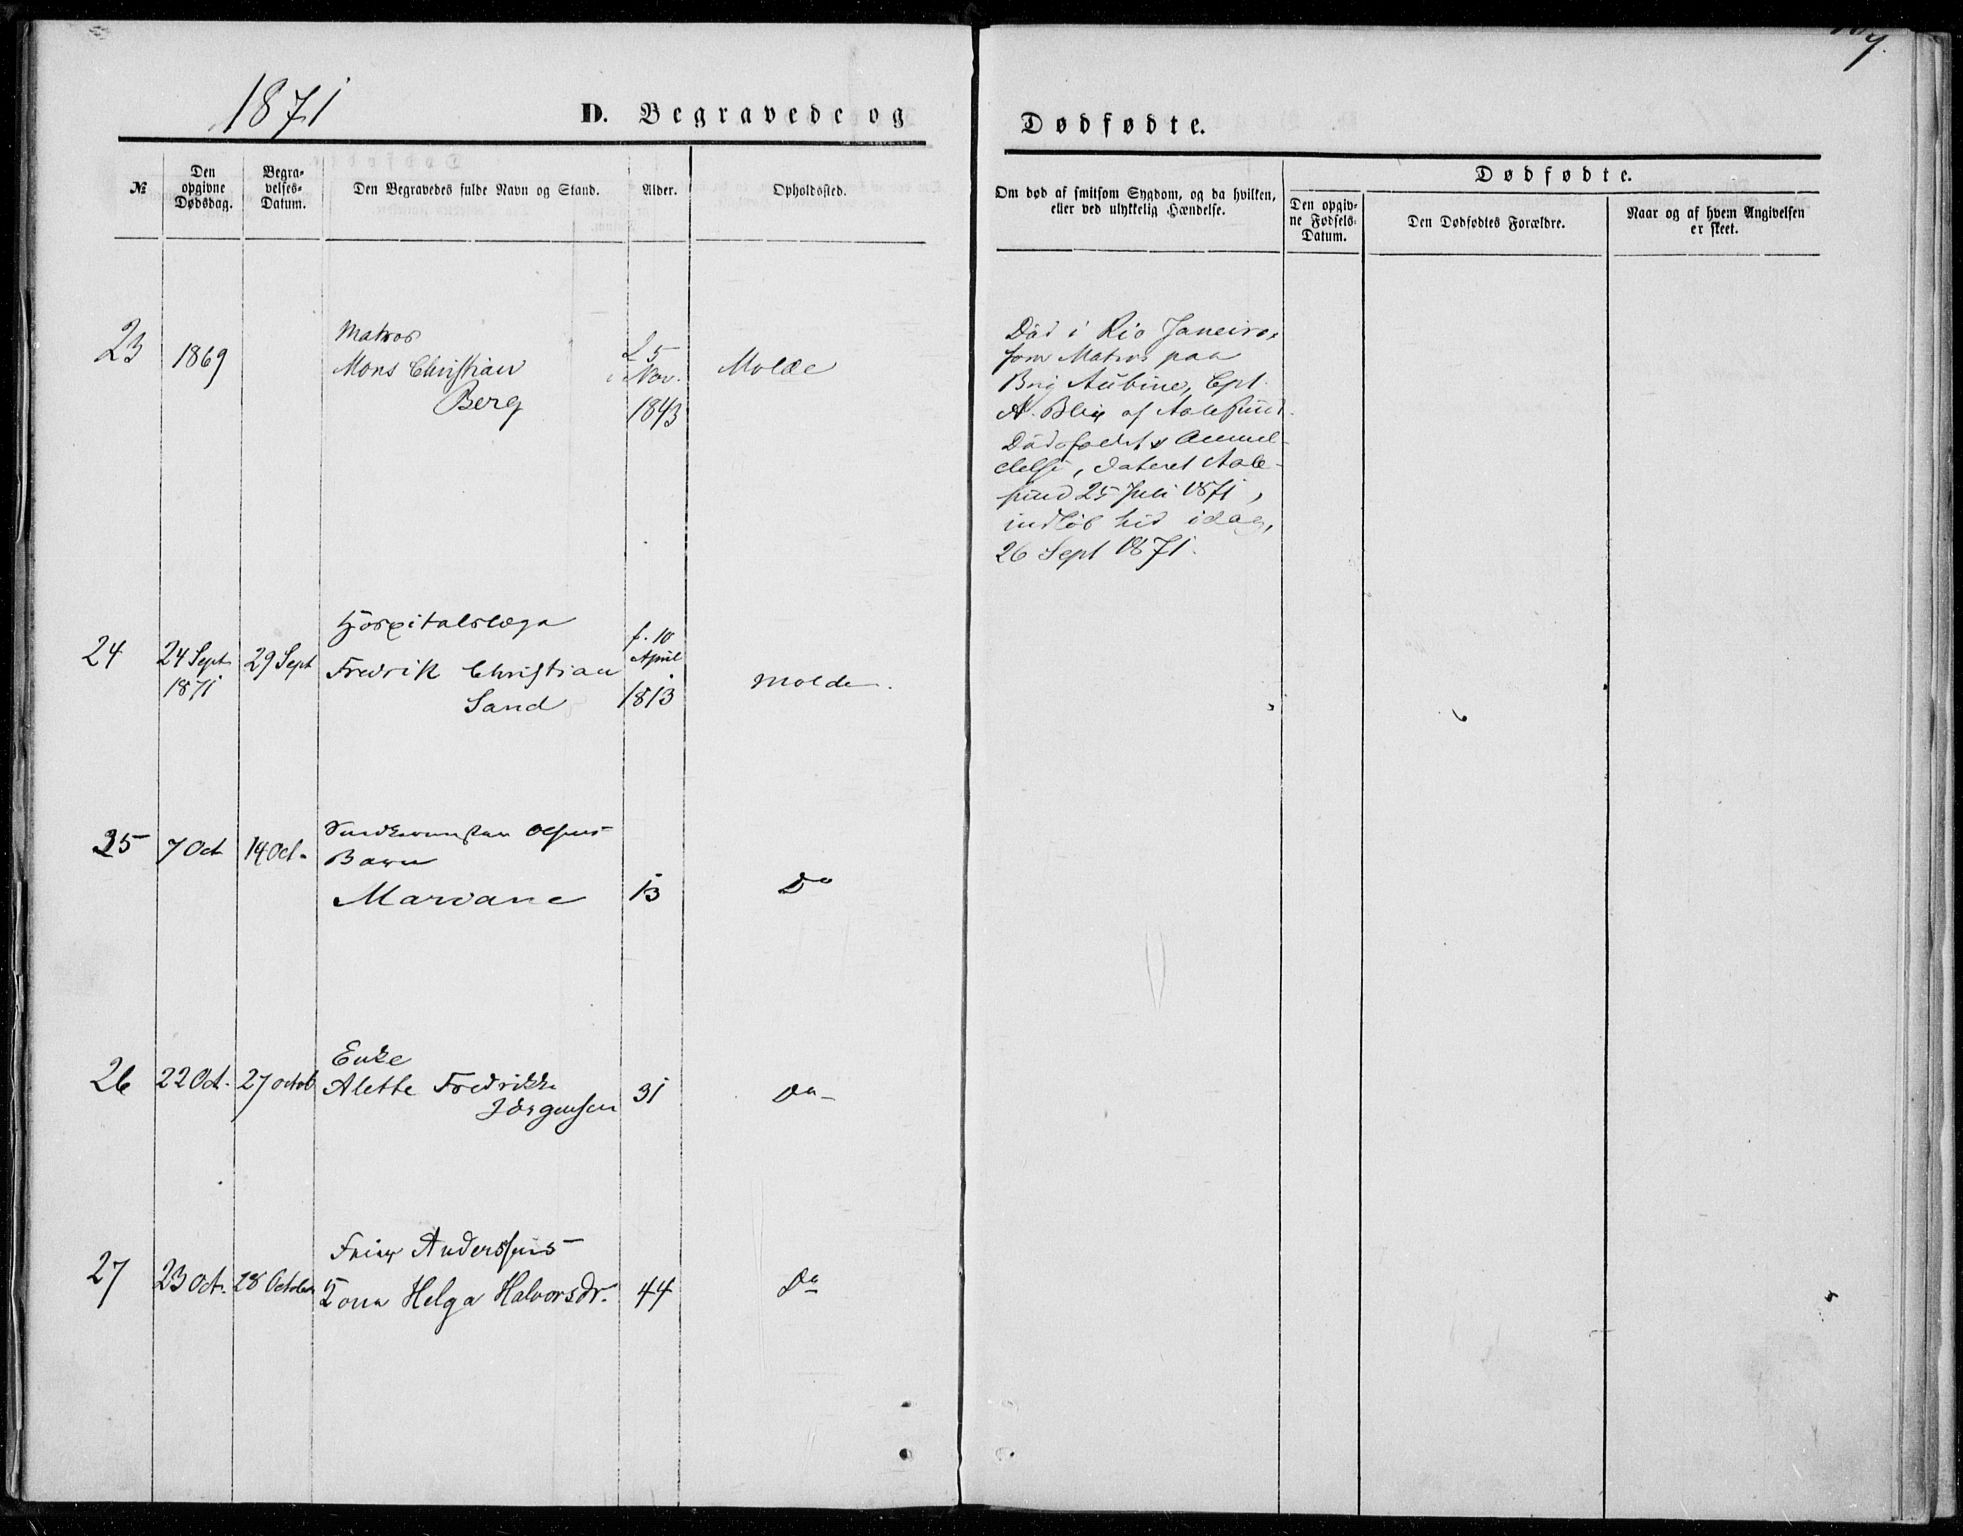 1871
D. Begravede og
Dødfødte.
7.
№
Den opgivne Dødsdag.
Begravelses-Datum.
Den Begravedes fulde Navn og Stand.
Alder.
Opholdssted.
Om død af smitsom Sygdom, og da hvilken,
eller ved ulykkelig Hændelse.
Dødfødte.
Den opgivne Fødsels-Datum.
Den Dødfødtes Forældre.
Naar og af hvem Angivelsen
er skeet.
23
1869
Matros
Mons Christian
Berg
25
Nov.
1843
Molde
Död i Rio Janeiro,
som Matros paa
Brig Aubine, Cpt.
A. Blix af Aalesund.
Dödsfaldets Anmel-
delse, dateret Aale-
sund 25 Juli 1871,
indløb hid idag,
26 Sept 1871.
24
24 Sept
1871
29 Sept
Hospitalslæge
Fredrik Christian
Sand
f. 10
April
1813
Molde.
25
7 Oct
14 Oct.
Olsens
Barn
Mariane
13
Do
26
22 Oct.
27 octob
Enke
Alette Fredrikke
Jörgensen
31
Do
27
23 Oct.
28 October
Feier Anderssens
Kona Helga Halvorsdr.
44
Do